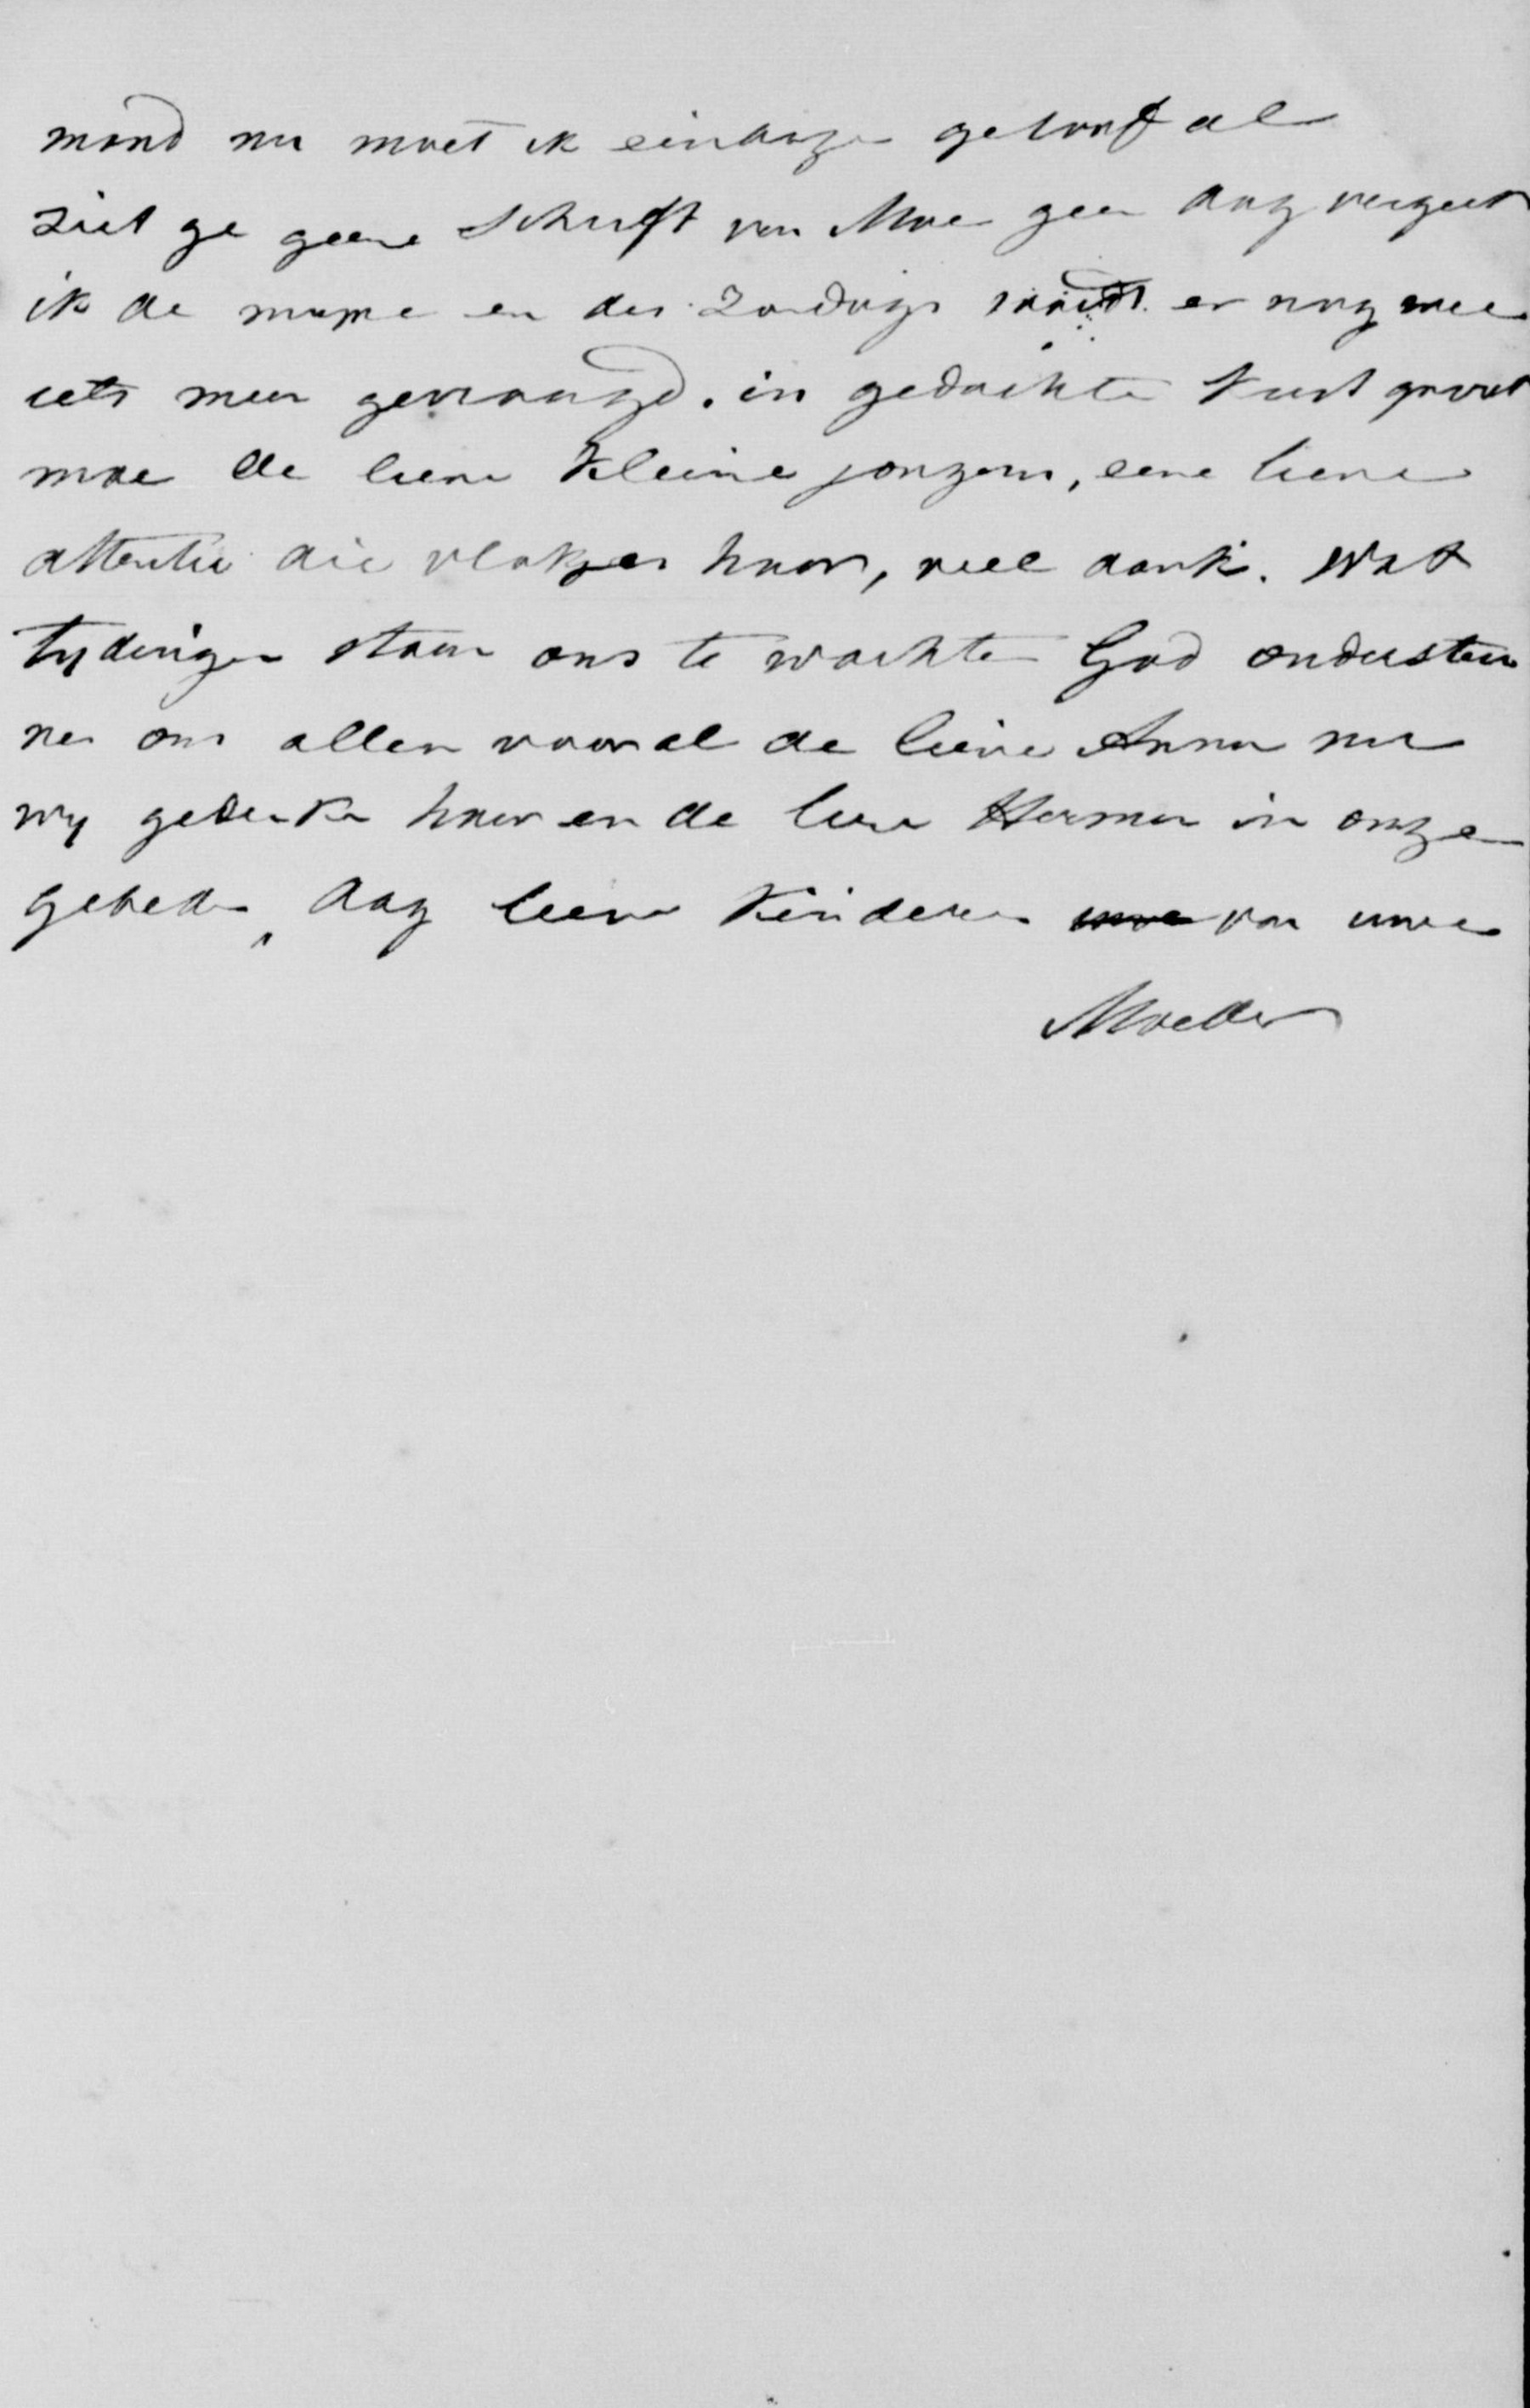 mond nu moet ik eindigen geloof al
ziet ge geene schrift van Moe geen dag vergeet
ik de mijne en des Zondags wordt er nog wel
iets meer gevraagd. in gedachte kust groot
moe de lieve kleine jongens, eene lieve
attentie die vlokjes haar, veel dank. Wat
tydingen staan ons te wachten God ondersteu
ne ons allen vooral de lieve Anna nu
wy gedenken haar en de lieve Herman in onze
gebeden, dag lieve kinderen van uwe
Moeder